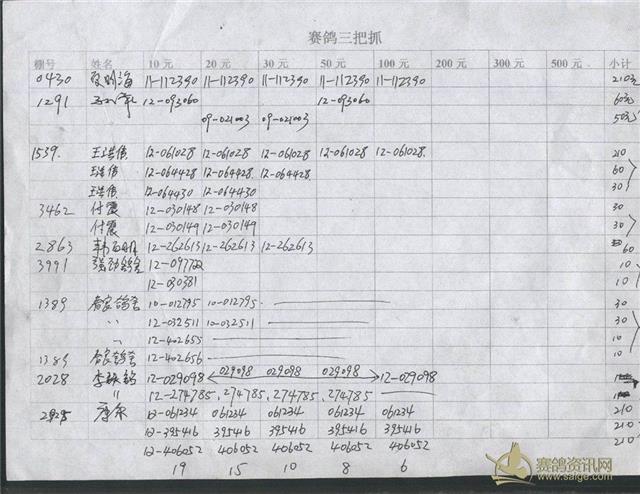 赛鸽三把抓
棚号 姓名 10元 20元 30元 50元 100元 200元 300元 500元 小计
0430 11-112390 11-112390 11-112390 11-112390 11-112390 210元
1291 12-093060 12-093060 60元
09-021003 09-021003 50元
1539. 王浩信 12-061028 12-061028 12-061028 12-061028 12-061028. 210
浩信 12-064428 12-064428 12-064428. 60
浩信 12-064430 12-064430 30
3462 付震 12-030148 12-030148 30
付震 12-030149 12-030149 30
2863 12-262613 12-262613 12-262613 60
3991 12-097722 10
12-030381 10
1389 10-012795 10-012795. 30
〃 12-032511 10-032511 30
〃 12-402655 10
1389 12-402656 10
2028 12-029098 029098 029098 029098 12-029098
〃 12-274785. 274785. 274785. 274785.
唐东 12-061234 061234 061234 061234 061234 210
12-395416 395416 395416 395416 395416 210
12-406052 406052 406052 406052 406052 210
19 15 10 8 6
赛鸽资讯网
www.saige.com